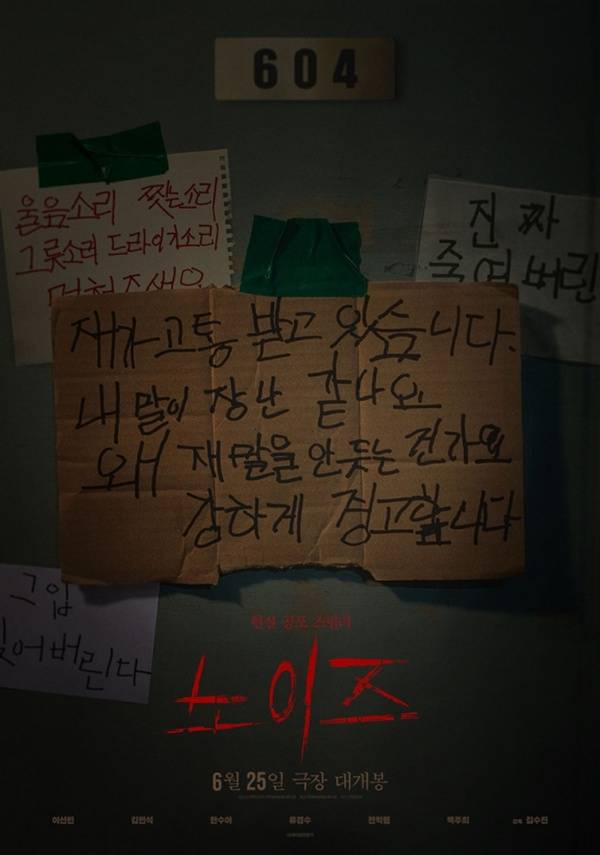 604
울음소리 찢는소리
그릇소리 드라이기소리
멈춰주세요
진짜
죽여버린
재가 고통 받고 있습니다.
내 말이 장난 같나요
왜 재 말을 안듣는 건가요
강하게 경고합니다
그입
찢어버린다
현실 공포 스릴러
노이즈
6월 25일 극장 대개봉
이선빈 김민석 한수아 류경수 전익령 백주희 감독 김수진